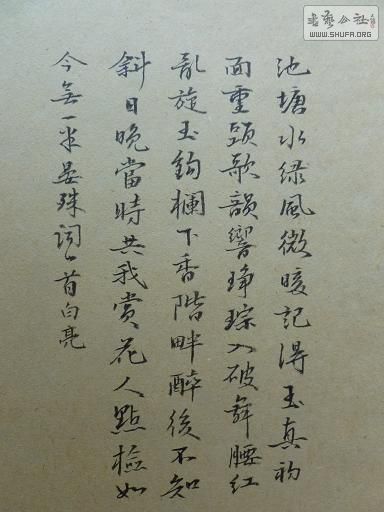 池塘水绿風微暖記得玉真初
面重頭歌韻響琤琮入破舞腰红
亂旋玉鉤欄下香階畔醉後不知
斜日晚當時共我賞花人點檢如
今無一半晏殊詞一首白亮
書藝公社
WWW.SHUFA.ORG